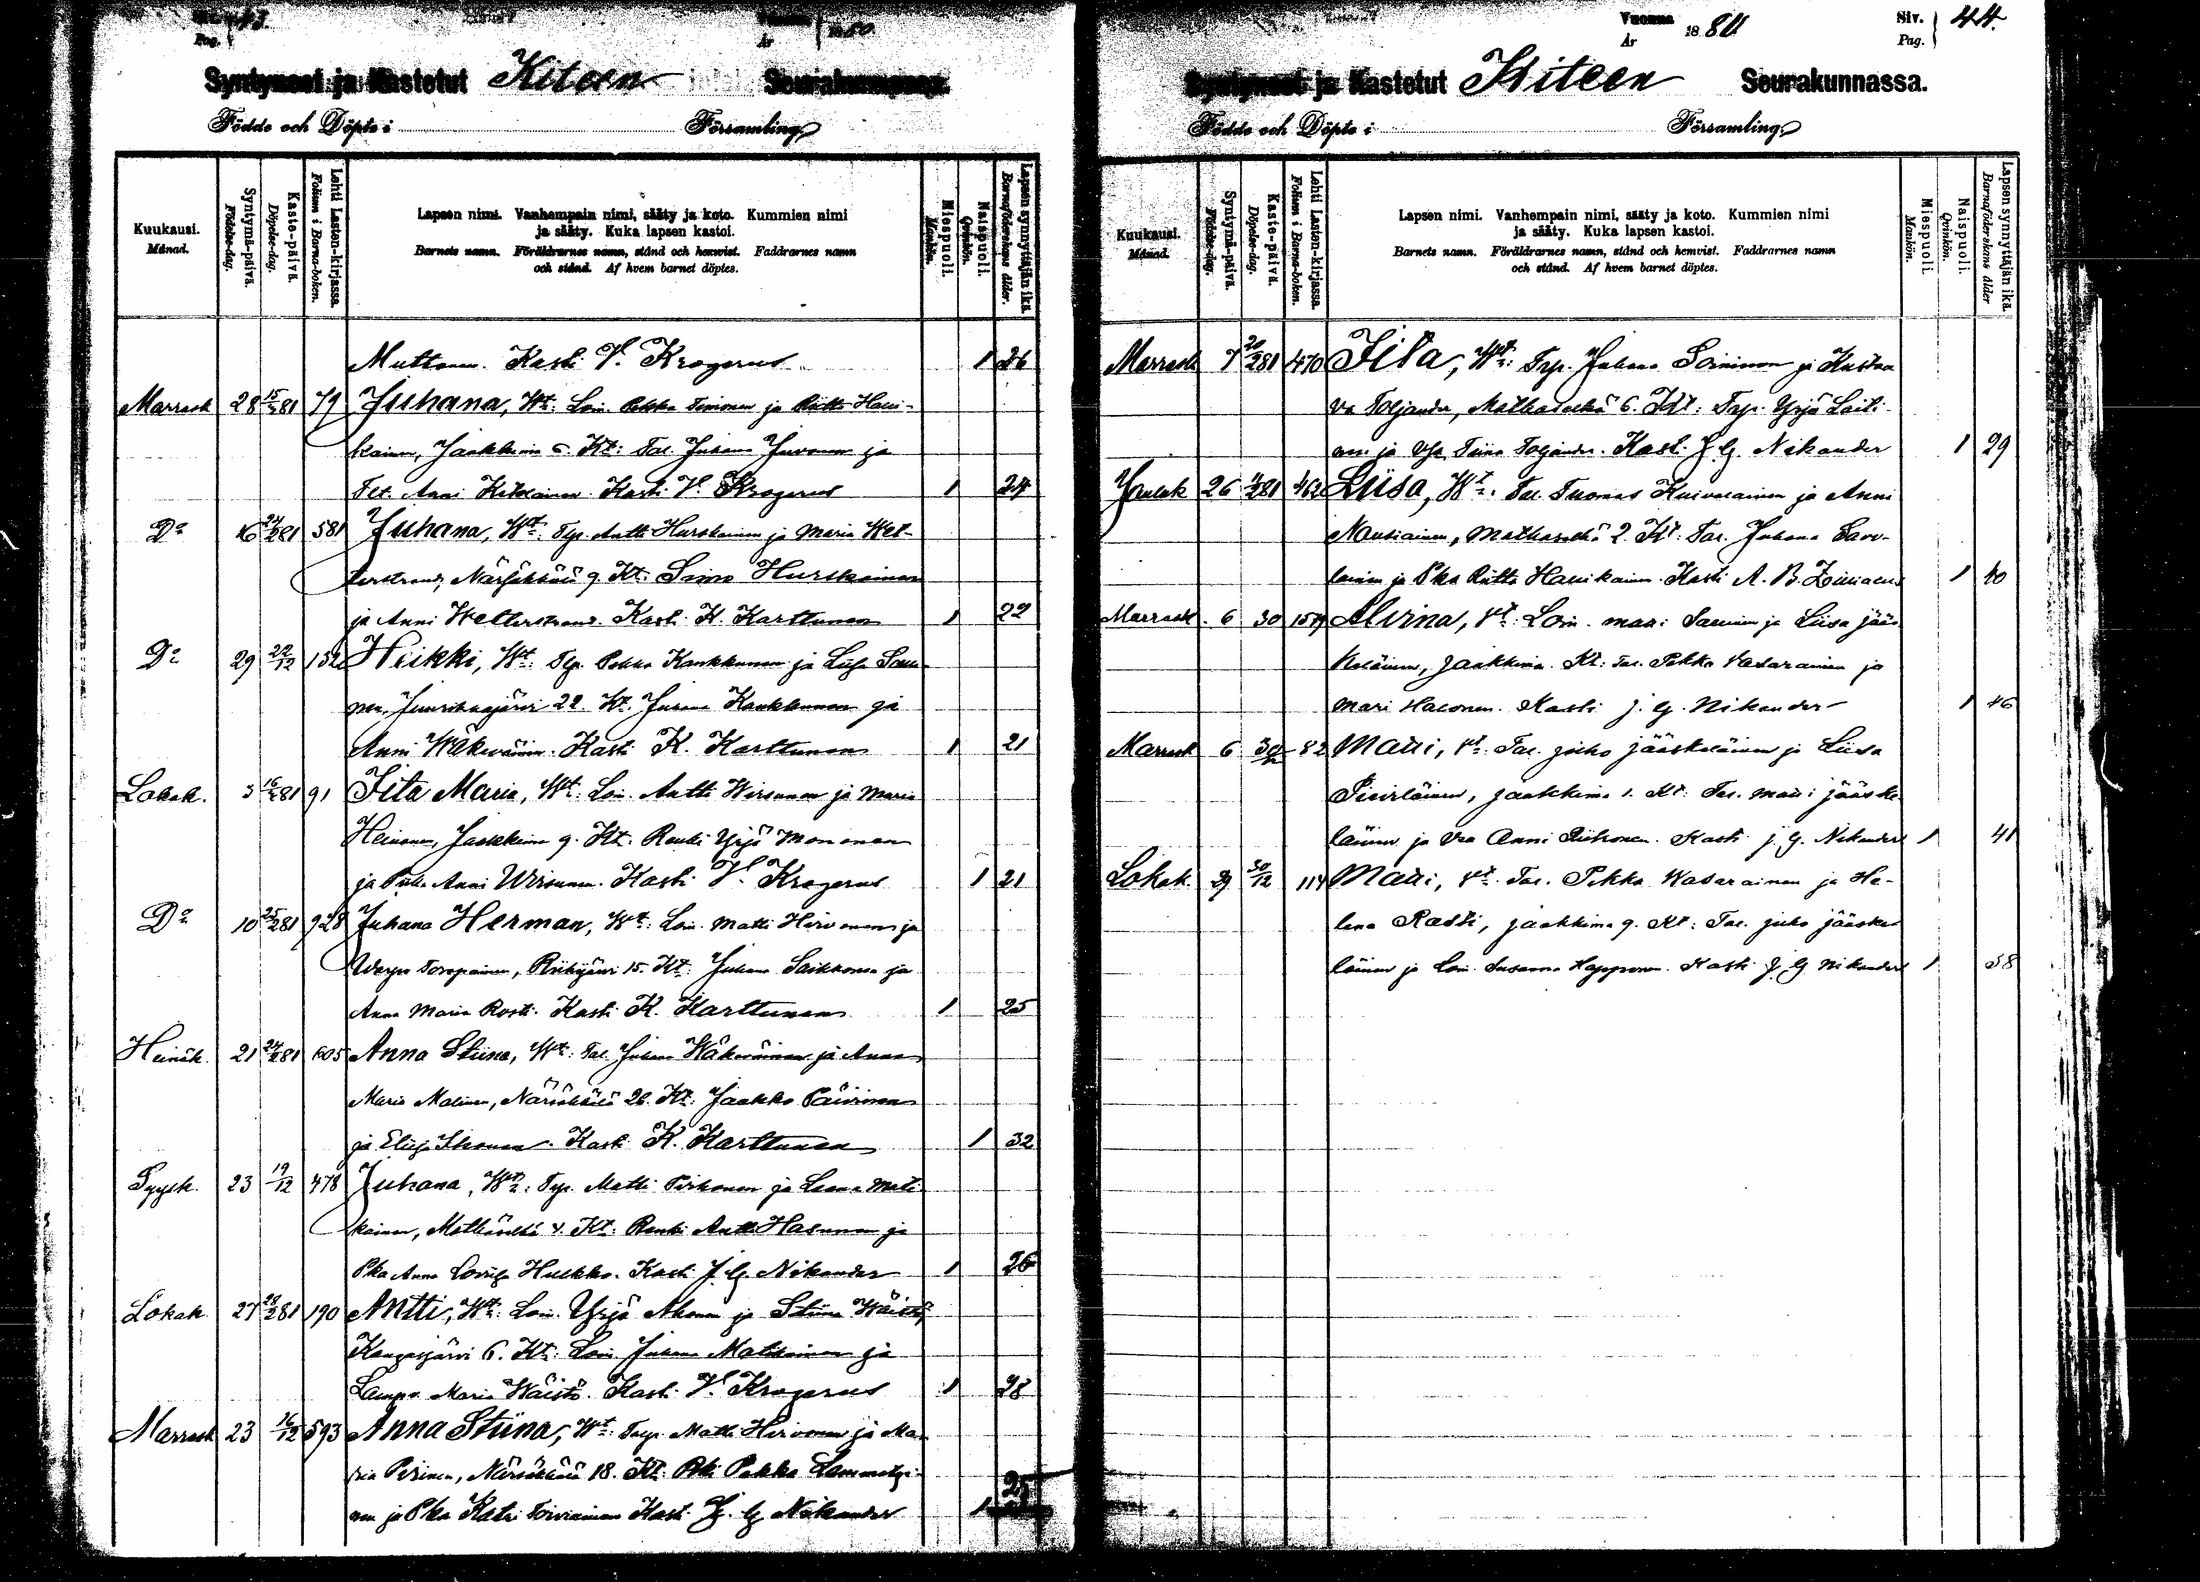 43.
Pag.
År
Syntyneet ja Kastetut Kiteen Seurakunnassa.
Födde och Döpte i Församling
Kuukausi. Månad.
Syntymä-päivä. Födelse-dag.
Kaste-päivä. Döpelse-dag.
Lehti Lasten-kirjassa. Folium i Barna-boken.
Lapsen nimi. Vanhempain nimi, sääty ja koto. Kummien nimi
ja sääty. Kuka lapsen kastoi.
Barnets namn. Föräldrarnes namn, stånd och hemvist. Faddrarnes namn
och stånd. Af hvem barnet döptes.
Miespuoli. Mankön.
Naispuoli. Qvinkön.
Lapsen synnyttäjän ikä. Barnaföderskans ålder.
Muttonen. Kasti V. Krogerus 1 26
Marrask 28 15/281 79 Juhana, Wt: Loin. Pekka Timonen ja Riitta Haui-
kainen, Jaakkima 5. Kt: Tal. Juhana Juvonen ja
Anni Kasti V. Krogerus 1 24
Do 16 24/281 581 Juhana, Wt: Tlp. Antti Hurskainen ja Maria Wet-
terstrand, Närsäkkälä 9. Kt: Simo Hurskainen
ja Anni Wetterstrand. Kasti K. Karttunen 1 22
Do 29 22/12 152 Heikki, Wt: Tlp. Pekka Kaukkunen ja Liisa Sau-
nen, Juurikkajärvi 22. Kt. Juhana Kaukkunen ja
Anni Wäkeväinen. Kasti K. Karttunen 1 21
Lokak. 3 16/281 91 Iita Maria, Wt: Loin. Antti Wirsunen ja Maria
Heinonen, Jaakkima 9. Kt: Renki Yrjö Mononen
ja Anni Wirsunen. Kasti V. Krogerus 1 21
Do 10 25/281 928 Juhana Herman, Wt: Loin. Matti Hirvonen ja
Toropainen, Riihijärvi 15. Kt: Juhana Saikkonen ja
Anna Maria Rosti. Kasti K. Karttunen 1 25
Heinäk. 21 24/281 605 Anna Stiina, Wt: Tal. Juhana Wäkeväinen ja Anna
Maria Malinen, Närsäkkälä 26. Kt: Jaakko Päivinen
ja Kasti K. Karttunen 1 32
Syysk. 23 19/12 478 Juhana, Wt: Typ. Matti Pirhonen ja Leena Mati-
kainen, Matkaselkä 4. Kt: Renki Antti Hakunen ja
Pka Anna Loviisa Hukko. Kasti J. G. Nikander 1 26
Lokak. 27 28/281 190 Antti, Wt: Loin. Yrjö Ahonen ja Stiina Wäistö,
Kangasjärvi 6. Kt: Loin. Juhana Matikainen ja
Maria Wäistö. Kasti V. Krogerus 1 28
Marrask 23 16/12 593 Anna Stiina, Wt: Matti Hirvonen ja Ma-
ria Pirinen, Närsäkkälä 18. Kt: Rki Pekka Lammatzi-
nen ja Pka Katri Toiviainen Kasti J. G. Nikander 1 25
Vuonna 1880 Siv. 44.
År Pag.
Syntyneet ja Kastetut Kiteen Seurakunnassa.
Födde och Döpte i Församling
Kuukausi. Månad.
Syntymä-päivä. Födelse-dag.
Kaste-päivä. Döpelse-dag.
Lehti Lasten-kirjassa. Folium i Barna-boken.
Lapsen nimi. Vanhempain nimi, sääty ja koto. Kummien nimi
ja sääty. Kuka lapsen kastoi.
Barnets namn. Föräldrarnes namn, stånd och hemvist. Faddrarnes namn
och stånd. Af hvem barnet döptes.
Miespuoli. Mankön.
Naispuoli. Qvinkön.
Lapsen synnyttäjän ikä. Barnaföderskans ålder
Marrask 7 20/281 470 Iita, Wt: Typ. Juhana Soininen ja Kusta-
va Toljander, Matkaselkä 6. Kt: Typ. Yrjö Laiti-
nen ja Tiina Toljander. Kasti J. G. Nikander 1 29
Jouluk 26 4/281 462 Liisa, Wt: Tal. Tuomas Kuivalainen ja Anni
Nousiainen, Matkaselkä 2. Kt. Tal. Juhana Savo-
lainen ja Pka Riitta Hauikainen. Kasti A. B. 1 40
Marrask 6 30 1579 Alvina, Vt: Loin. Matti ja Liisa Jääs-
keläinen, Jaakkima. Kt: Tal. Pekka Vasarainen ja
Mari Halonen. Kasti J. G. Nikander 1 46
Marrask 6 30/12 82 Matti, Vt: Tal. Juho Jääskeläinen ja Liisa
Jaakkima 1. Kt: Tal. Matti Jääske-
läinen ja Anni Kasti J. G. Nikander 1 41
Lokak 29 30/12 114 Matti, Vt: Tal. Pekka Wasarainen ja He-
lena Rasti, Jaakkima 9. Kt: Tal. Juho Jääske-
läinen ja Loin. Susanna Happonen. Kasti J. G Nikander 1 38